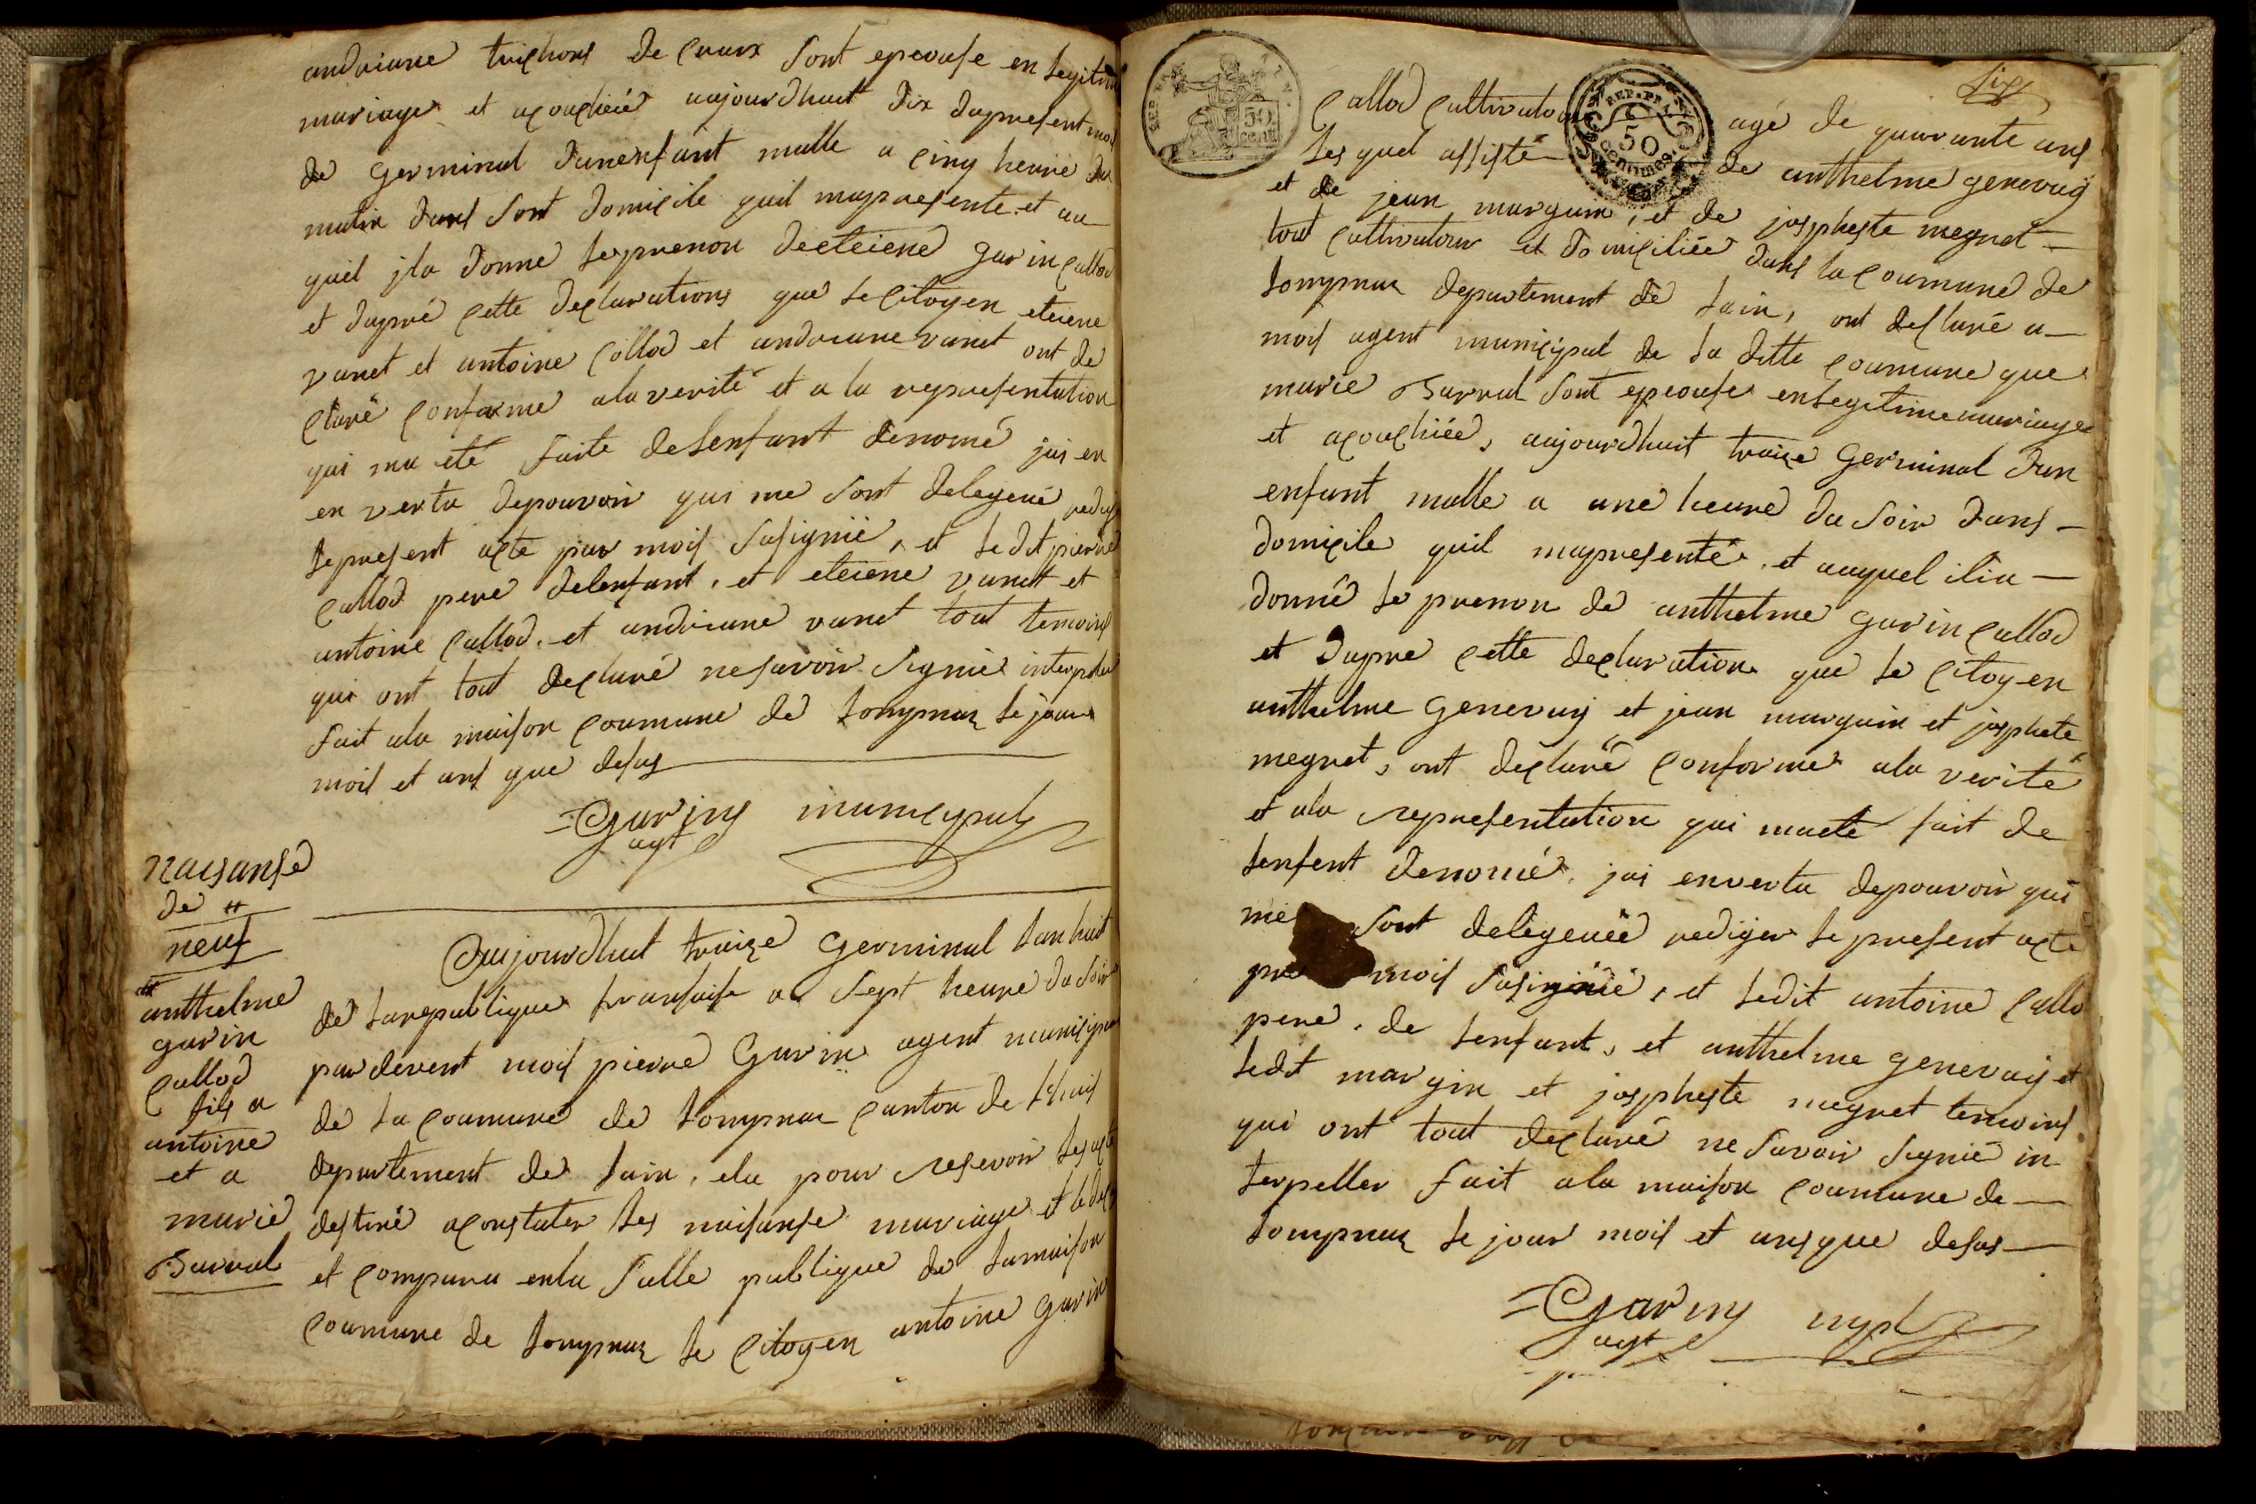 andriane trichons de craux sont epeouse en legitim
mariage et acouchéé aujourdhuit dix du present moi
de germinal dun enfant malle a cinq heure du
matin dans sont domicile quil ma presente et au
quel jla donne le prenon de eteiene garin callod
et dapré cette declarations que le citoyen eteiene
vanet et antoine collod et andriane vanet ont de
claré conforme ala verité et a la representation
qui ma eté faite de lenfant denomé jai en
en vertu de pouvoir qui me sont delegeué redig
le present acte par mois susignié, et le dit pierre
callod pere de lenfant, et eteiene vanet et
antoine callod, et andriane vanet tout temoins
qui ont tout declaré ne savoir signié interpeller
fait ala maison coumune de lompnaz le jour
mois et ans que desus
Garin municypal
agt
naisanse
de #
neuf
# anthelme
garin
callod
fils a
antoine
et a
marie
Barral
Aujourdhuit traize germinal lan huit
de la republique fransaise a sept heure du soir
par devent mois pierre Garin agent municipal
de la coumune de lompnaz canton de lhuis
departement de lain, elu pour resevoir les acte
destiné a constater les naisanse mariage et le dece
et comparu en la salle publique de la maison
coumune de lompnaz le citoyen antoine garin
six
REP. FRA.
50
cent.
REP. FRA.
50
centimes
callod cultivatour agé de quarante ans
les quel assisté de anthelme genevay
et de jean marguin, et de jospheste megnet
tout cultivatour et domiciliée dans la coumune de
lompnaz departement de lain, ont declaré a
mois agent municipal de la ditte coumune que
marie Barral sont epeouse en legitime mariage
et acouchiée, aujourdhuit traize germinal dun
enfant malle a une heure du soir dans
domicile quil ma presenté, et auquel ilia
donné le prenon de anthelme garin callod
et dapre cette declaration que le citoyen
anthelme genevay et jean marguin et josphete
megnet, ont declaré conforme ala verité
et ala representation qui ma eté fait de
lenfent denomié, jai en vertu de pouvoir qui
me sont delegeuée rediger le present acte
par mois susignié, et ledit antoine callo
pere, de lenfant, et anthelme genevay et
ledit margin et jospheste megnet temoins
qui ont tout declaré ne savoir signié in
terpeller fait ala maison coumune de
lompnaz le jour mois et ans que desus
Garin mpl
agt